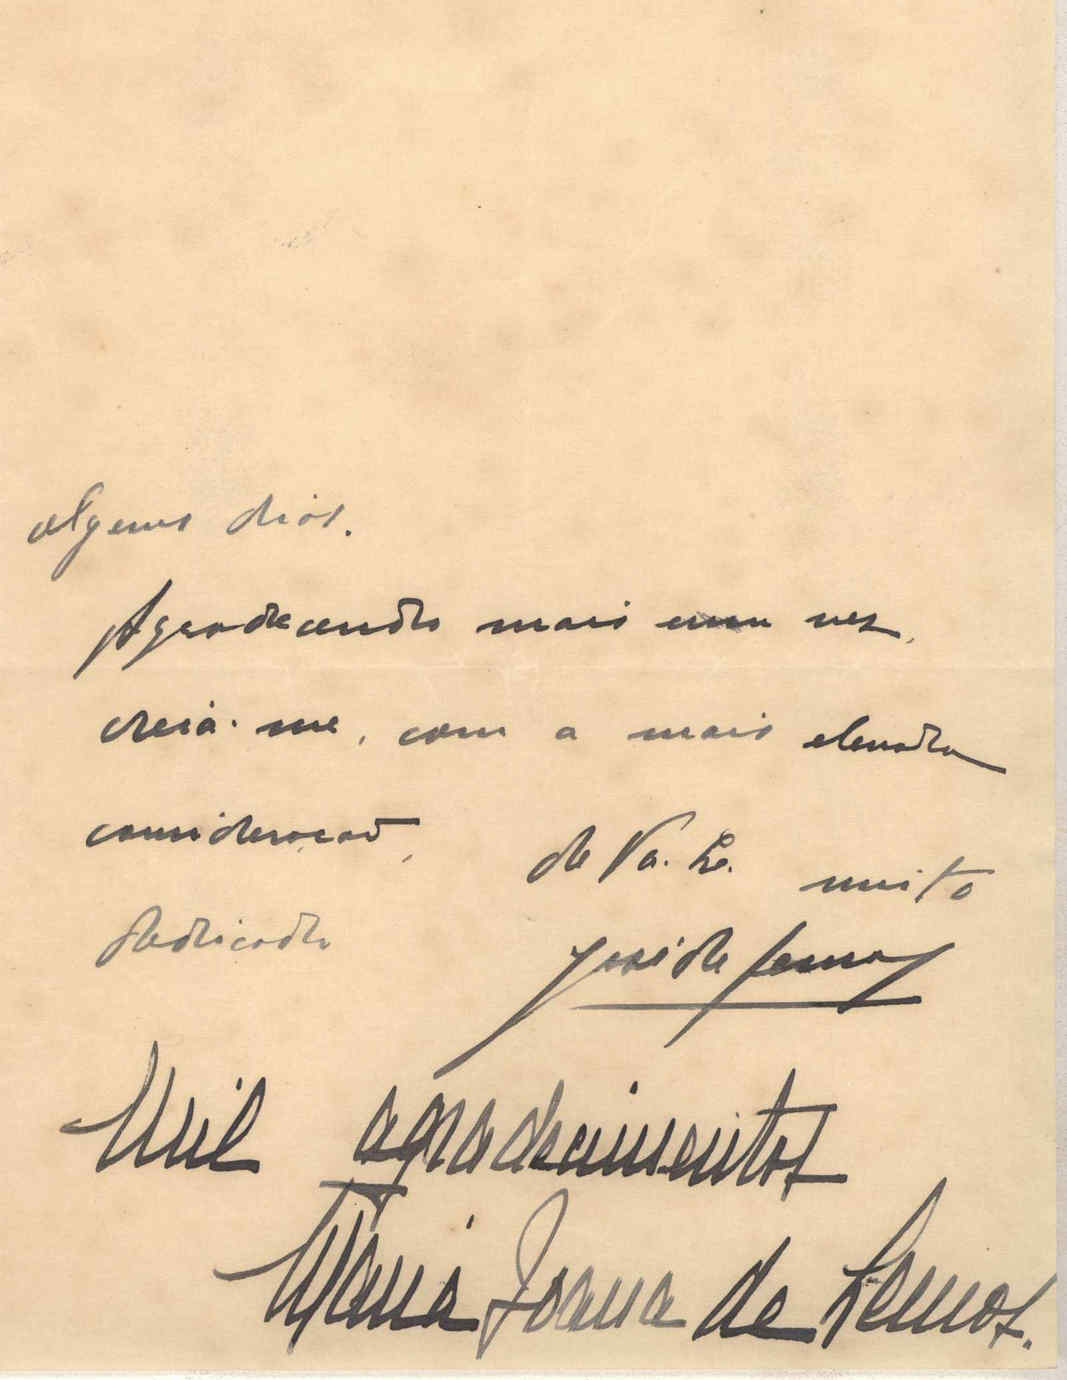 alguns dias.
Agradecendo mais uma vez,
creia-me, com a mais elevada
consideração,
de Va. Ex.
muito
dedicado
José de Lemos
Mil agradecimentos
Maria Joana de Lemos.